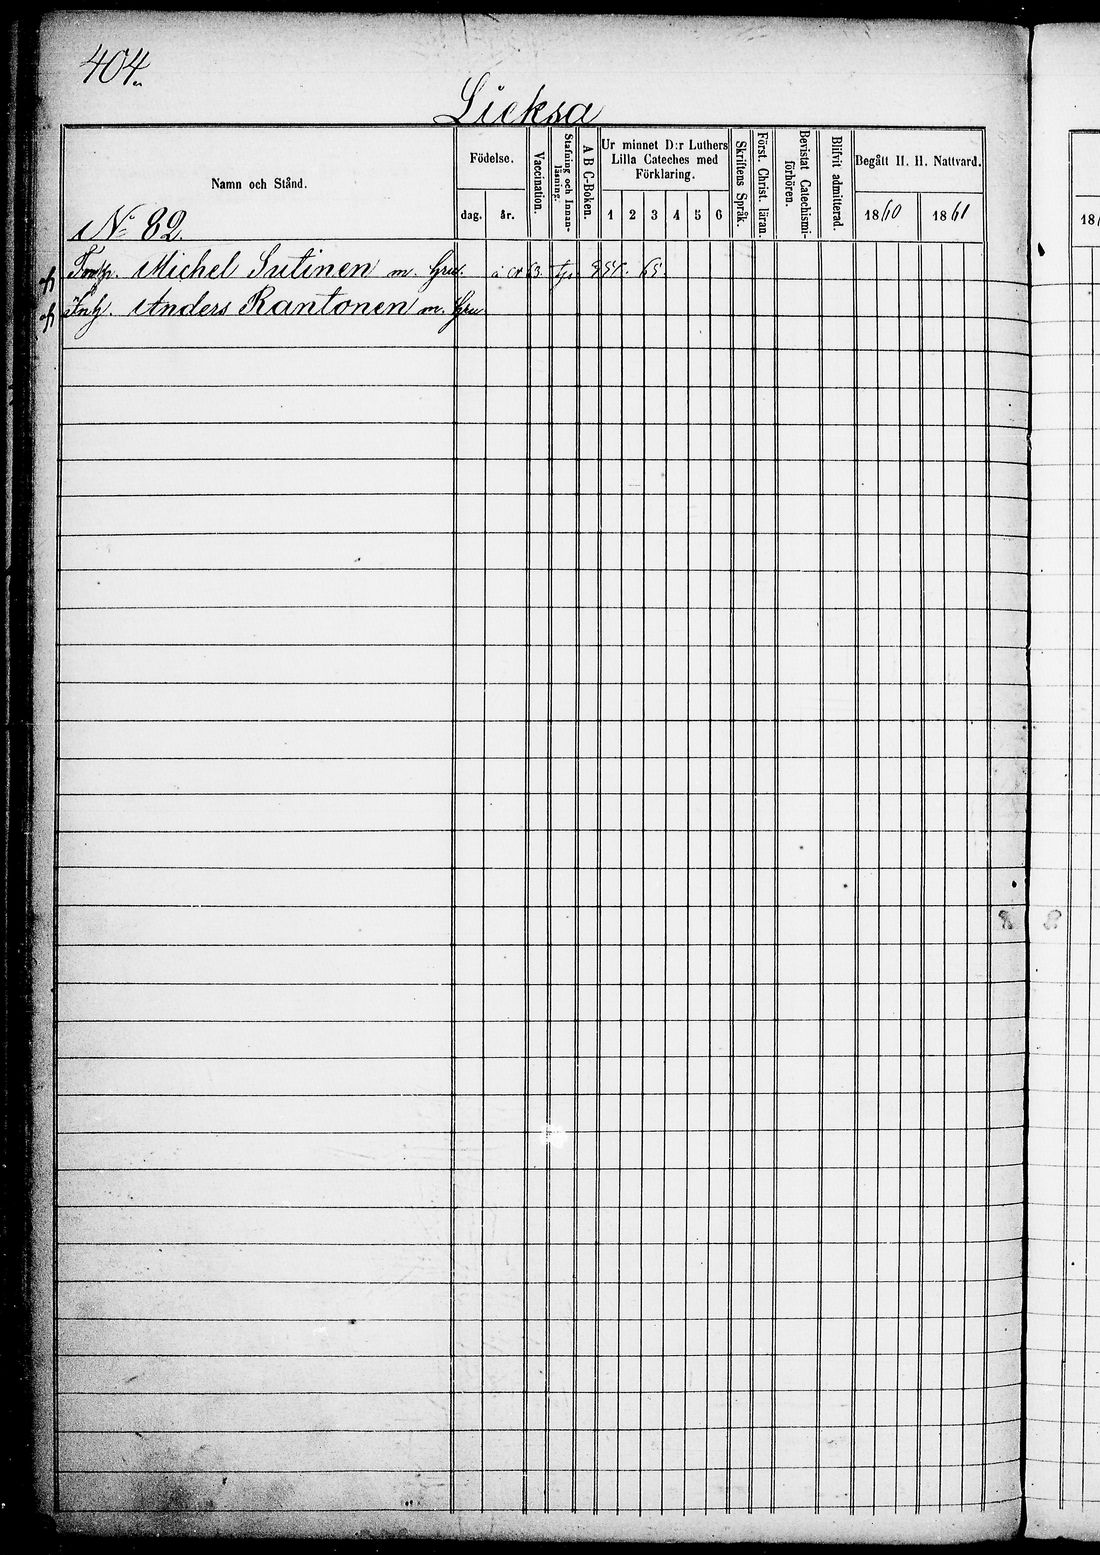 404.
Lieksa
Namn och Stånd.
Födelse.
dag.
år.
Vaccination.
Stafning och Innan-
läsning.
A B C-Boken.
Ur minnet D:r Luthers
Lilla Cateches med
Förklaring.
1 2 3 4 5 6
Skriftens Språk.
Först. Christ. läran.
Bevistat Catechismi-
förhören.
Blifvit admitterad.
Begått H. H. Nattvard.
1860
1861
18
No 82.
Michel Sutinen m. Hru.
Inh. Anders Rantonen m. Hru